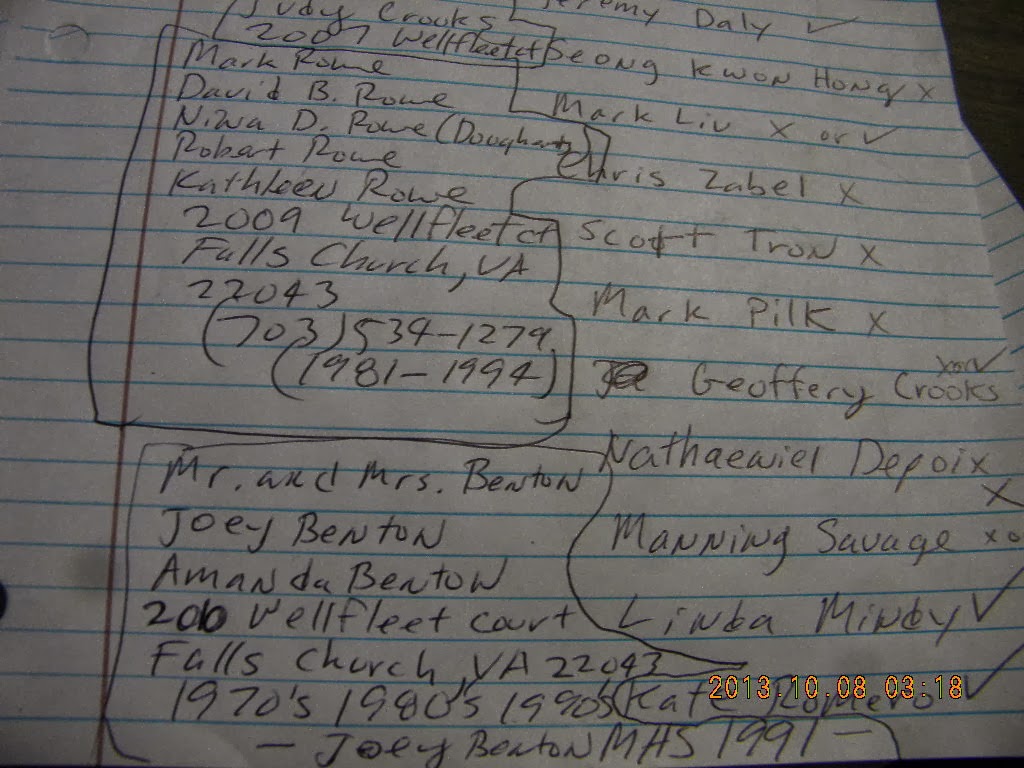 Judy Crooks
2007 Wellfleetct
Mark Rowe
David B. Rowe
Nina D. Rowe (Dougharty)
Robert Rowe
Kathleen Rowe
2009 Wellfleetct
Falls Church, VA
22043
(703) 534-1279
(1981-1994)
Mr. and Mrs. Benton
Joey Benton
Amanda Benton
Wellfleet court
Falls Church, VA 22043
1970's 1980's 1990's
- Joey Benton MHS 1991 -
Jeremy Daly ✓
Seong Kwon Hong x
Mark Liu x or ✓
Chris Zabel x
Scott Tron x
Mark Pilk x
x or ✓
Geoffery Crooks
Nathaewiel Depoix
x
Manning Savage xo
Linda Mindy ✓
Kate Romero ✓
2013.10.08 03:18